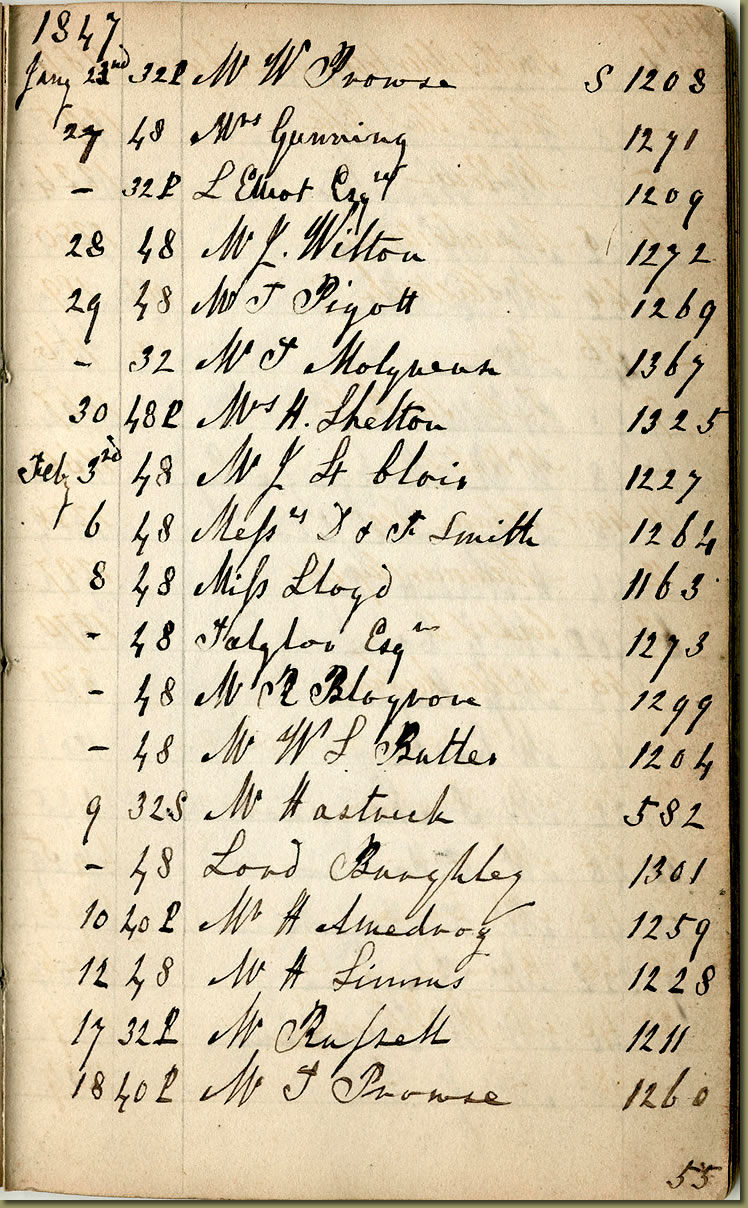 1847
Jany 23nd 32P Mr W Prowse S 1208
27 48 Mrs Gunning 1271
– 32P L Elliot Esqre 1209
28 48 Mr J. Wilton 1272
29 48 Mr T Pigott 1269
– 32 Mr T Molyneux 1367
30 48P Mrs H. Shelton 1325
Feby 3rd 48 Mr J St Clair 1227
6 48 Messrs D & F Smith 1264
8 48 Miss Lloyd 1163
– 48 Esqre 1273
– 48 Mr R Blagrove 1299
– 48 Mr W S Butler 1204
9 32S Mr Hastrick 582
– 48 Lord Burghley 1301
10 40P Mr H Amedroz 1259
12 48 Mr H Simms 1228
17 32P Mr Russell 1211
18 40P Mr T Prowse 1260
55